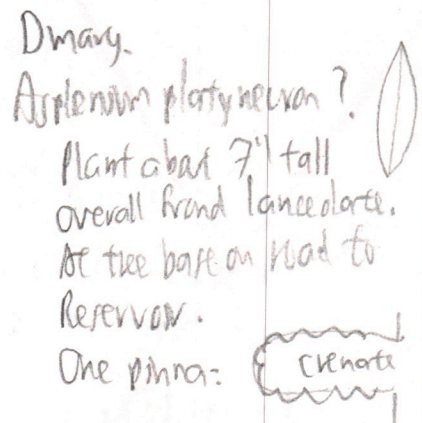 Dmarg.
Asplenium platyneuron ?.
Plant about 7" tall
overall frond lanceolate.
At tree base on road to
Reservoir.
One pinna: crenate